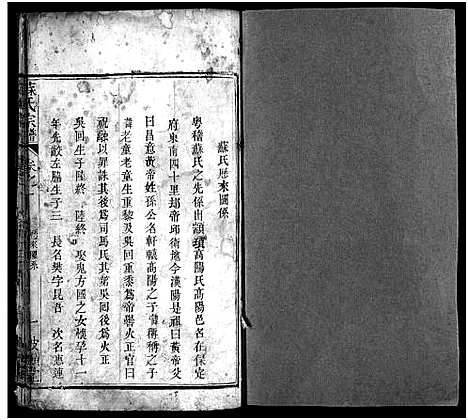 蘇氏歷來圖係
粵稽蘇氏之先係出顓頊高陽氏高陽邑名在保定
府東南四十里却帝邱衛地今漢陽是祖曰黃帝父
曰昌意黃帝姓孫公名軒轅高陽之子偁稱之子
老童老童生重黎及吳回重黍為帝嚳火正官曰
祝融以罪誅其後為司馬氏其弟吳回後為火正
吳回生子陸終 陸終 娶鬼方國之女樸孕十一
年先啟左脇生子三 長名樊字昆吾 次名惠連
蘇氏宗譜
卷之